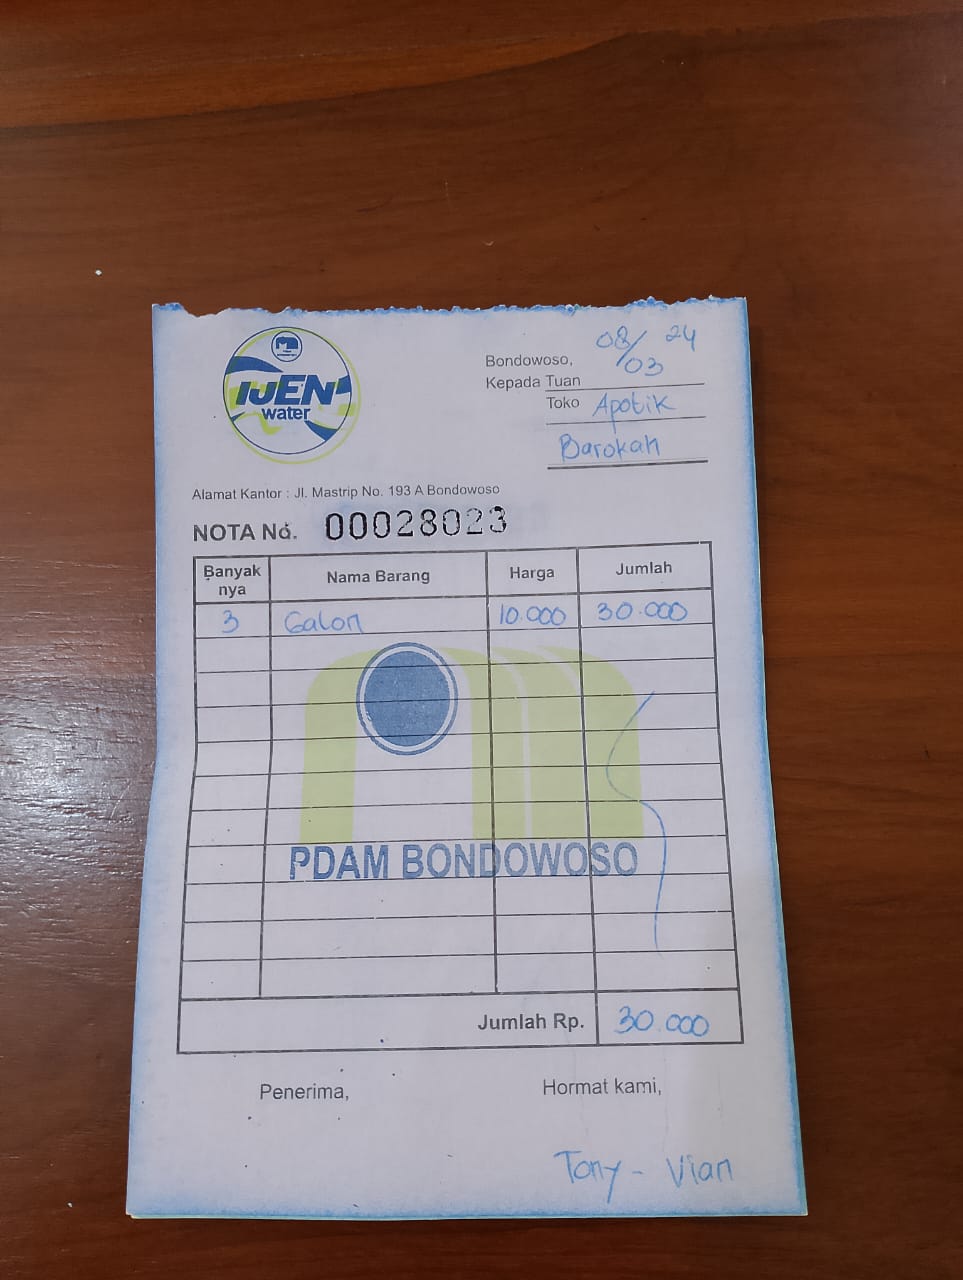 IJEN
water
Bondowoso, 08/03 24
Kepada Tuan
Toko Apotik
Barokah
Alamat Kantor : Jl. Mastrip No. 193 A Bondowoso
NOTA No. 00028023
Banyak nya Nama Barang Harga Jumlah
3 Galon 10.000 30.000
PDAM BONDOWOSO
Jumlah Rp. 30.000
Penerima, Hormat kami,
Tony - Vian